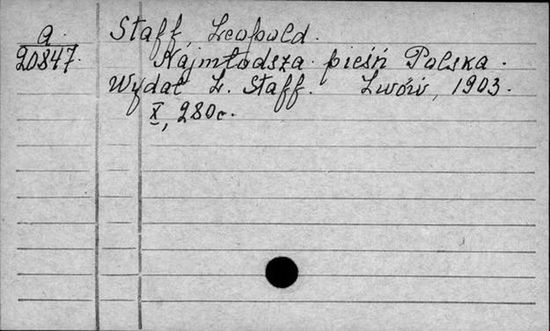 a. Staff, Leopold.
20847. Najmłodsza pieśń Polska.
Wydał L. Staff. Lwów, 1903.
X, 280c.